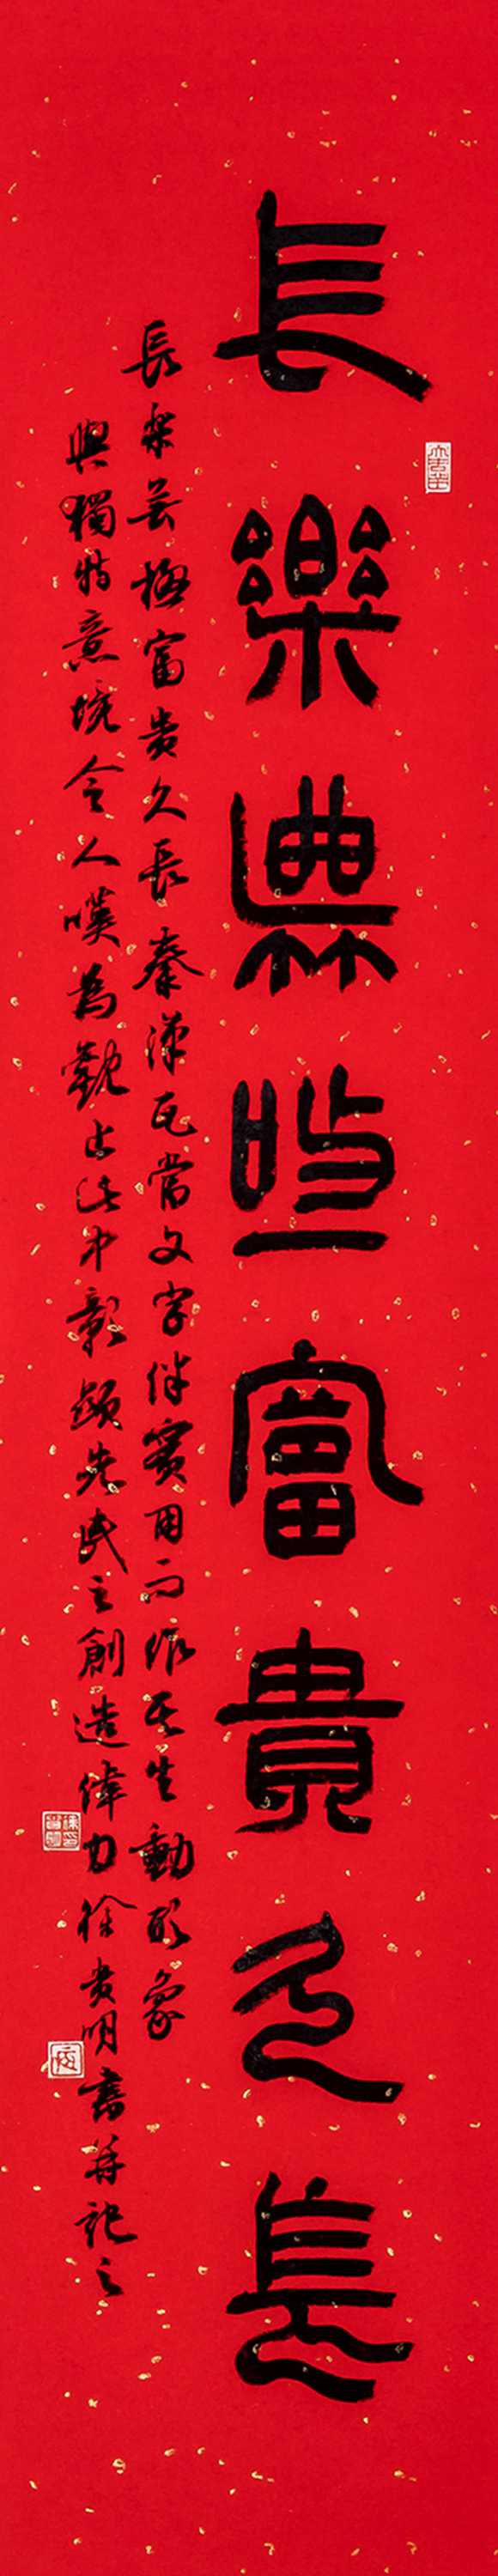 長樂無極富貴久長
長樂無極富貴久長秦漢瓦當文字伴實用而作其生動形象
與獨特意境令人嘆為觀止此中彰顯先民之創造偉力徐貴明書并記之
大吉羊